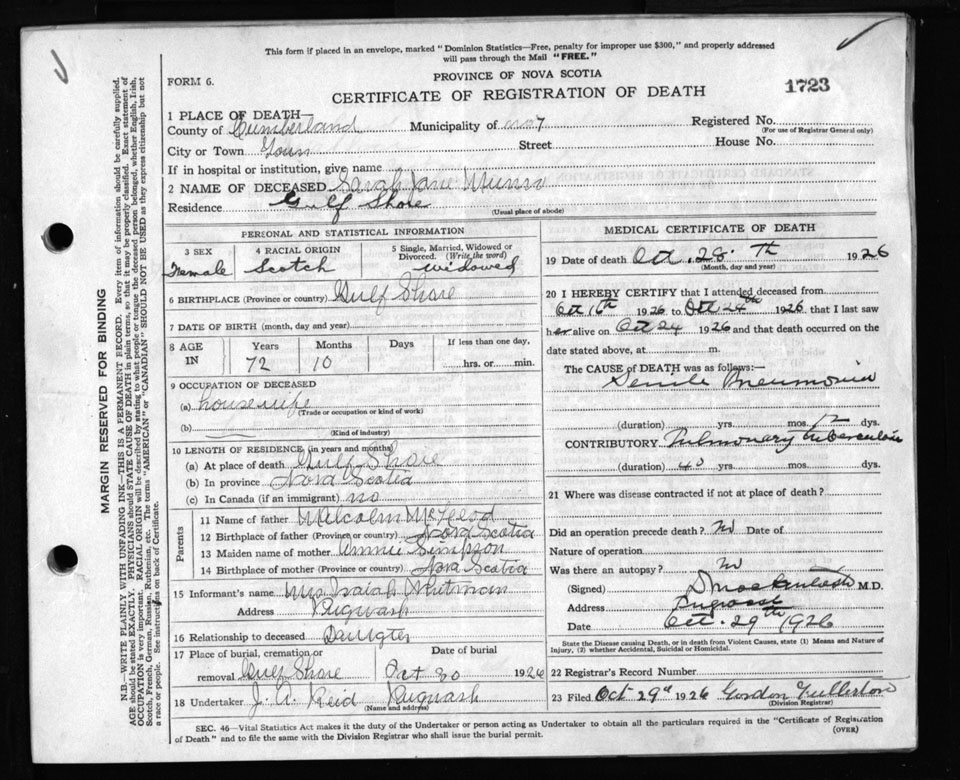 This form if placed in an envelope, marked "Dominion Statistics—Free, penalty for improper use $300," and properly addressed
will pass through the Mail "FREE."
FORM 6.
PROVINCE OF NOVA SCOTIA
1723
CERTIFICATE OF REGISTRATION OF DEATH
1 PLACE OF DEATH—
County of Cumberland Municipality of no 7 Registered No.
(For use of Registrar General only)
City or Town Town Street House No.
If in hospital or institution, give name
2 NAME OF DECEASED Sarah Jane Munro
Residence Gulf Shore
(Usual place of abode)
PERSONAL AND STATISTICAL INFORMATION
3 SEX 4 RACIAL ORIGIN 5 Single, Married, Widowed or
Divorced. (Write the word)
Female Scotch widowed
6 BIRTHPLACE (Province or country) Gulf Shore
7 DATE OF BIRTH (month, day and year)
8 AGE IN Years Months Days If less than one day,
72 10 hrs. or min.
9 OCCUPATION OF DECEASED
(a) housewife
(Trade or occupation or kind of work)
(b)
(Kind of industry)
10 LENGTH OF RESIDENCE (in years and months)
(a) At place of death Gulf Shore
(b) In province Nova Scotia
(c) In Canada (if an immigrant) no
Parents
11 Name of father Malcolm McLeod
12 Birthplace of father (Province or country) Nova Scotia
13 Maiden name of mother Annie Simpson
14 Birthplace of mother (Province or country) Nova Scotia
15 Informant's name Mrs Isaiah
Address Pugwash
16 Relationship to deceased Daugter
17 Place of burial, cremation or Date of burial
removal Gulf Shore Oct 30 1926
18 Undertaker J. A. Reid Pugwash
(Name and address)
MEDICAL CERTIFICATE OF DEATH
19 Date of death Oct. 28 Th 1926
(Month, day and year)
20 I HEREBY CERTIFY that I attended deceased from
Oct 16th 1926 to Oct 24th 1926 that I last saw
her alive on Oct 24 1926 and that death occurred on the
date stated above, at m.
The CAUSE OF DEATH was as follows:—
Senile Pneumonia
(duration) yrs. mos. 12 dys.
CONTRIBUTORY Pulmonary tuberculosis
(duration) 40 yrs. mos. dys.
21 Where was disease contracted if not at place of death?
Did an operation precede death? No Date of
Nature of operation
Was there an autopsy? no
(Signed) M.D.
Address Pugwash
Date Oct. 29th 1926
State the Disease causing Death, or in death from Violent Causes, state (1) Means and Nature of
Injury, (2) whether Accidental, Suicidal or Homicidal.
22 Registrar's Record Number
23 Filed Oct 29th 1926 Gordon Fullerton
(Division Registrar)
SEC. 45—Vital Statistics Act makes it the duty of the Undertaker or person acting as Undertaker to obtain all the particulars required in the "Certificate of Registration
of Death" and to file the same with the Division Registrar who shall issue the burial permit.
(OVER)
MARGIN RESERVED FOR BINDING
N.B.—WRITE PLAINLY WITH UNFADING INK—THIS IS A PERMANENT RECORD. Every item of information should be carefully supplied.
AGE should be stated EXACTLY. PHYSICIANS should STATE CAUSE OF DEATH in plain terms, so that it may be properly classified. Exact statement of
OCCUPATION is very important. RACIAL ORIGIN will be described by stating to what people or tongue the deceased person belonged, whether English, Irish,
Scotch, French, German, Russian, Ruthenian, etc. The terms "AMERICAN" or "CANADIAN" SHOULD NOT BE USED as they express citizenship but not
a race or people. See instructions on back of Certificate.